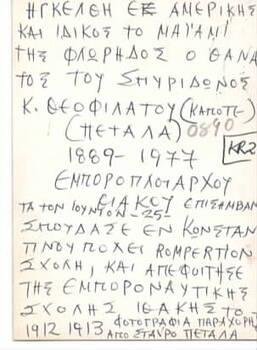 ΗΓΚΕΛΘΗ ΕΞ ΑΜΕΡΙΚΗΣ
ΚΑΙ ΙΔΙΚΟΣ ΤΟ ΜΑΪΑΜΙ
ΤΗΣ ΦΛΩΡΗΔΟΣ Ο ΘΑΝΑ
ΤΟΣ ΤΟΥ ΣΠΥΡΙΔΩΝΟΣ
Κ. ΘΕΟΦΙΛΑΤΟΥ (ΚΑΠΟΤΕ-
(ΠΕΤΑΛΑ) 0890
1889-1977 KR2
ΕΜΠΟΡΟΠΛΟΙΑΡΧΟΥ
ΤΑ ΤΟΝ ΙΟΥΝΙΟΝ -25- ΕΠΙΣΑΜΒΑΝ
ΣΠΟΥΔΑΣΕ ΕΝ ΚΟΝΣΤΑΝ
ΤΙΝΟΥΠΟΧΕΙ ROMPERTION
ΣΧΟΛΗ, ΚΑΙ ΑΠΕΦΟΙΤΗΣΕ
ΤΗΣ ΕΜΠΟΡΟΝΑΥΤΙΚΗΣ
ΣΧΟΛΗΣ ΙΘΑΚΗΣ ΤΟ
1912 1913 ΦΩΤΟΓΡΑΦΙΑ ΠΑΡΑΧΩΡΗ
ΑΠΟ ΣΤΑΥΡΟ ΠΕΤΑΛΑ